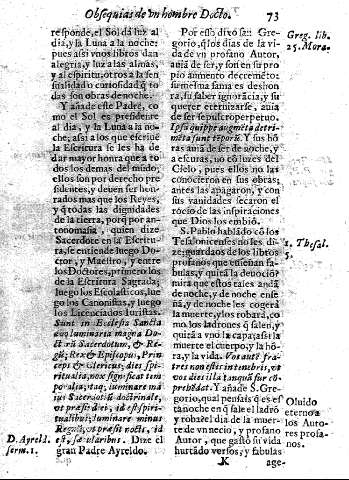 Obsequias de vn hombre Docto. 73
responde, el Sol dá luz al
dia, y la Luna a la noche:
pues assi vnos libros dan
alegria, y luz a las almas,
y al espiritu; otros a la sen
sualidad o curiosidad q̃ to
das son obras de noche.
Y añade este Padre, co
mo el Sol es presidente
al dia, y la Luna a la no-
che, assi a los que escriuẽ
la Escritura se les ha de
dar mayor honra que a to
dos los demas del mũdo;
ellos son por derecho pre
sidentes, y deuen ser hon
rados mas que los Reyes,
y q̃ todas las dignidades
de la tierra, porq̃ por an-
tonomasia, quien dize
Sacerdote en la Escritu-
ra, se entiende luego Do-
ctor, y Maestro, y entre
los Doctores, primero los
de la Escritura Sagrada;
luego los Escolasticos, lue
go los Canonistas, y luego
los Licenciados Iuristas.
Sunt in Ecclesia Sancta
duo luminaria magna Do-
ctrix Sacerdotum, & Re-
gũ; Rex & Episcopus, Prin
ceps & clericus; dies spi-
ritualia, nox significat tem
poralia; itaq; luminare ma
ius Sacerdotiũ doctrinale,
vt præsit diei, id est spiri-
tualibus; luminare minus
Regũ, vt præsit nocti, id
D. Ayreld. serm. 1.
est, sæcularibus. Dize el
gran Padre Ayreldo.
Por esso dixo san Gre-
gorio, q̃ los dias de la vi-
da de vn profano Autor,
auiã de ser, y son en su pro
pio aumento decremẽto:
su misma fama es deshon
ra, su saber ignorãcia, y su
querer eternizarse, auia
de ser sepulcro perpetuo.
Ipsi quippe augmẽta detri-
mẽta sunt tẽporũ. Y sus ho
ras auiã de ser de noche, y
a escuras, no cõ luzes del
Cielo, pues ellos no las
conocieron en sus obras;
antes las apagaron, y con
sus vanidades secaron el
rocio de las inspiraciones
que Dios les embiò.
Greg. lib. 25. Mora.
S. Pablo hablãdo cõ los
Tesalonicenses no les di-
ze; guardaos de los libros
profanos que enseñan fa-
bulas, y quitã la deuociõ?
mira que estos tales andã
de noche, y de noche ense
ñã, y de noche les cogerá
la muerte, y los robarà, co
mo los ladrones q̃ salen, y
quitã a vno la capa; assi la
muerte el cuerpo, y la hõ-
ra, y la vida. Vos autẽ fra-
tres non estis in tenebris, vt
vos dies illa tanquã fur cõ-
prehẽdat. Y añade S. Gre-
gorio, qual pensais q̃ es es
ta noche en q̃ sale el ladrõ
y roba? el dia de la muer-
te de vn necio, y profano
Autor, que gastò su vida
hurtado versos, y fabulas
1. Thesal. 5.
Oluido eterno a los Auto-
res profa-
nos.
K age-